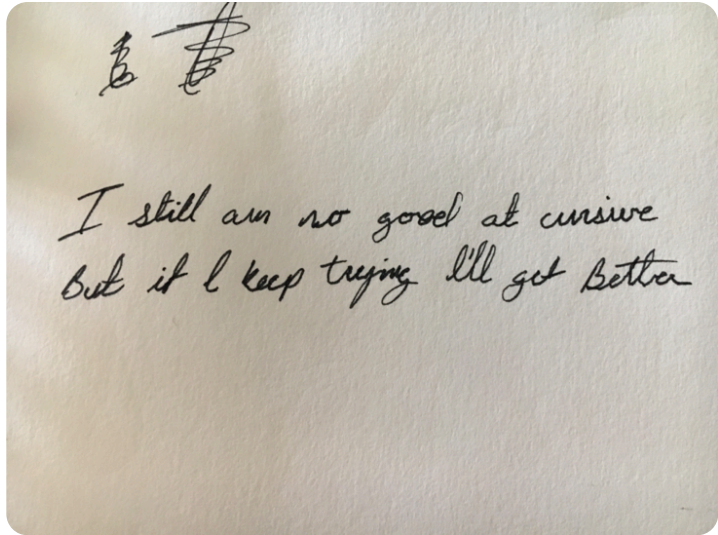 I still am no good at cursive
But if I keep trying I'll get Better